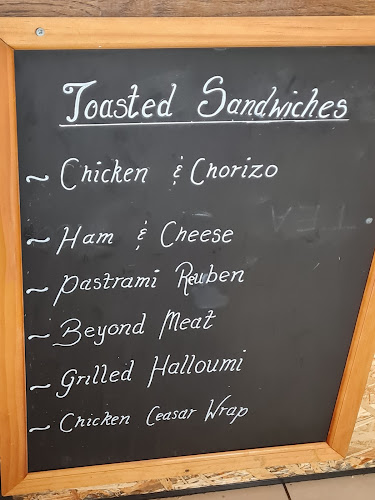 Toasted Sandwiches
~ Chicken & Chorizo
~ Ham & Cheese
~ Pastrami Reuben
~ Beyond Meat
~ Grilled Halloumi
~ Chicken Ceasar Wrap